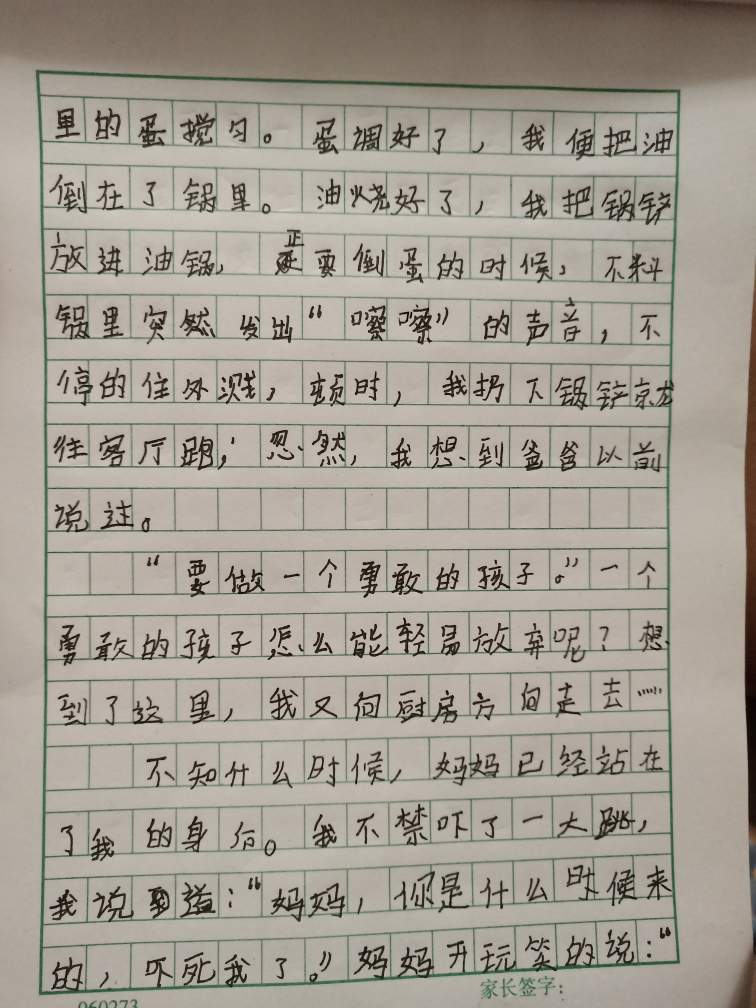 里的蛋搅匀。蛋调好了，我便把油
倒在了锅里。油烧好了，我把锅铲
放进油锅，正要倒蛋的时候，不料
锅里突然发出“嚓嚓”的声音，不
停的往外溅，顿时，我扔下锅铲就
往客厅跑，忽然，我想到爸爸以前
说过。
“要做一个勇敢的孩子。”一个
勇敢的孩子怎么能轻易放弃呢？想
到了这里，我又向厨房方向走去……
不知什么时候，妈妈已经站在
了我的身后。我不禁吓了一大跳，
我说道：“妈妈，你是什么时候来
的，吓死我了。”妈妈开玩笑的说：“
060273
家长签字：